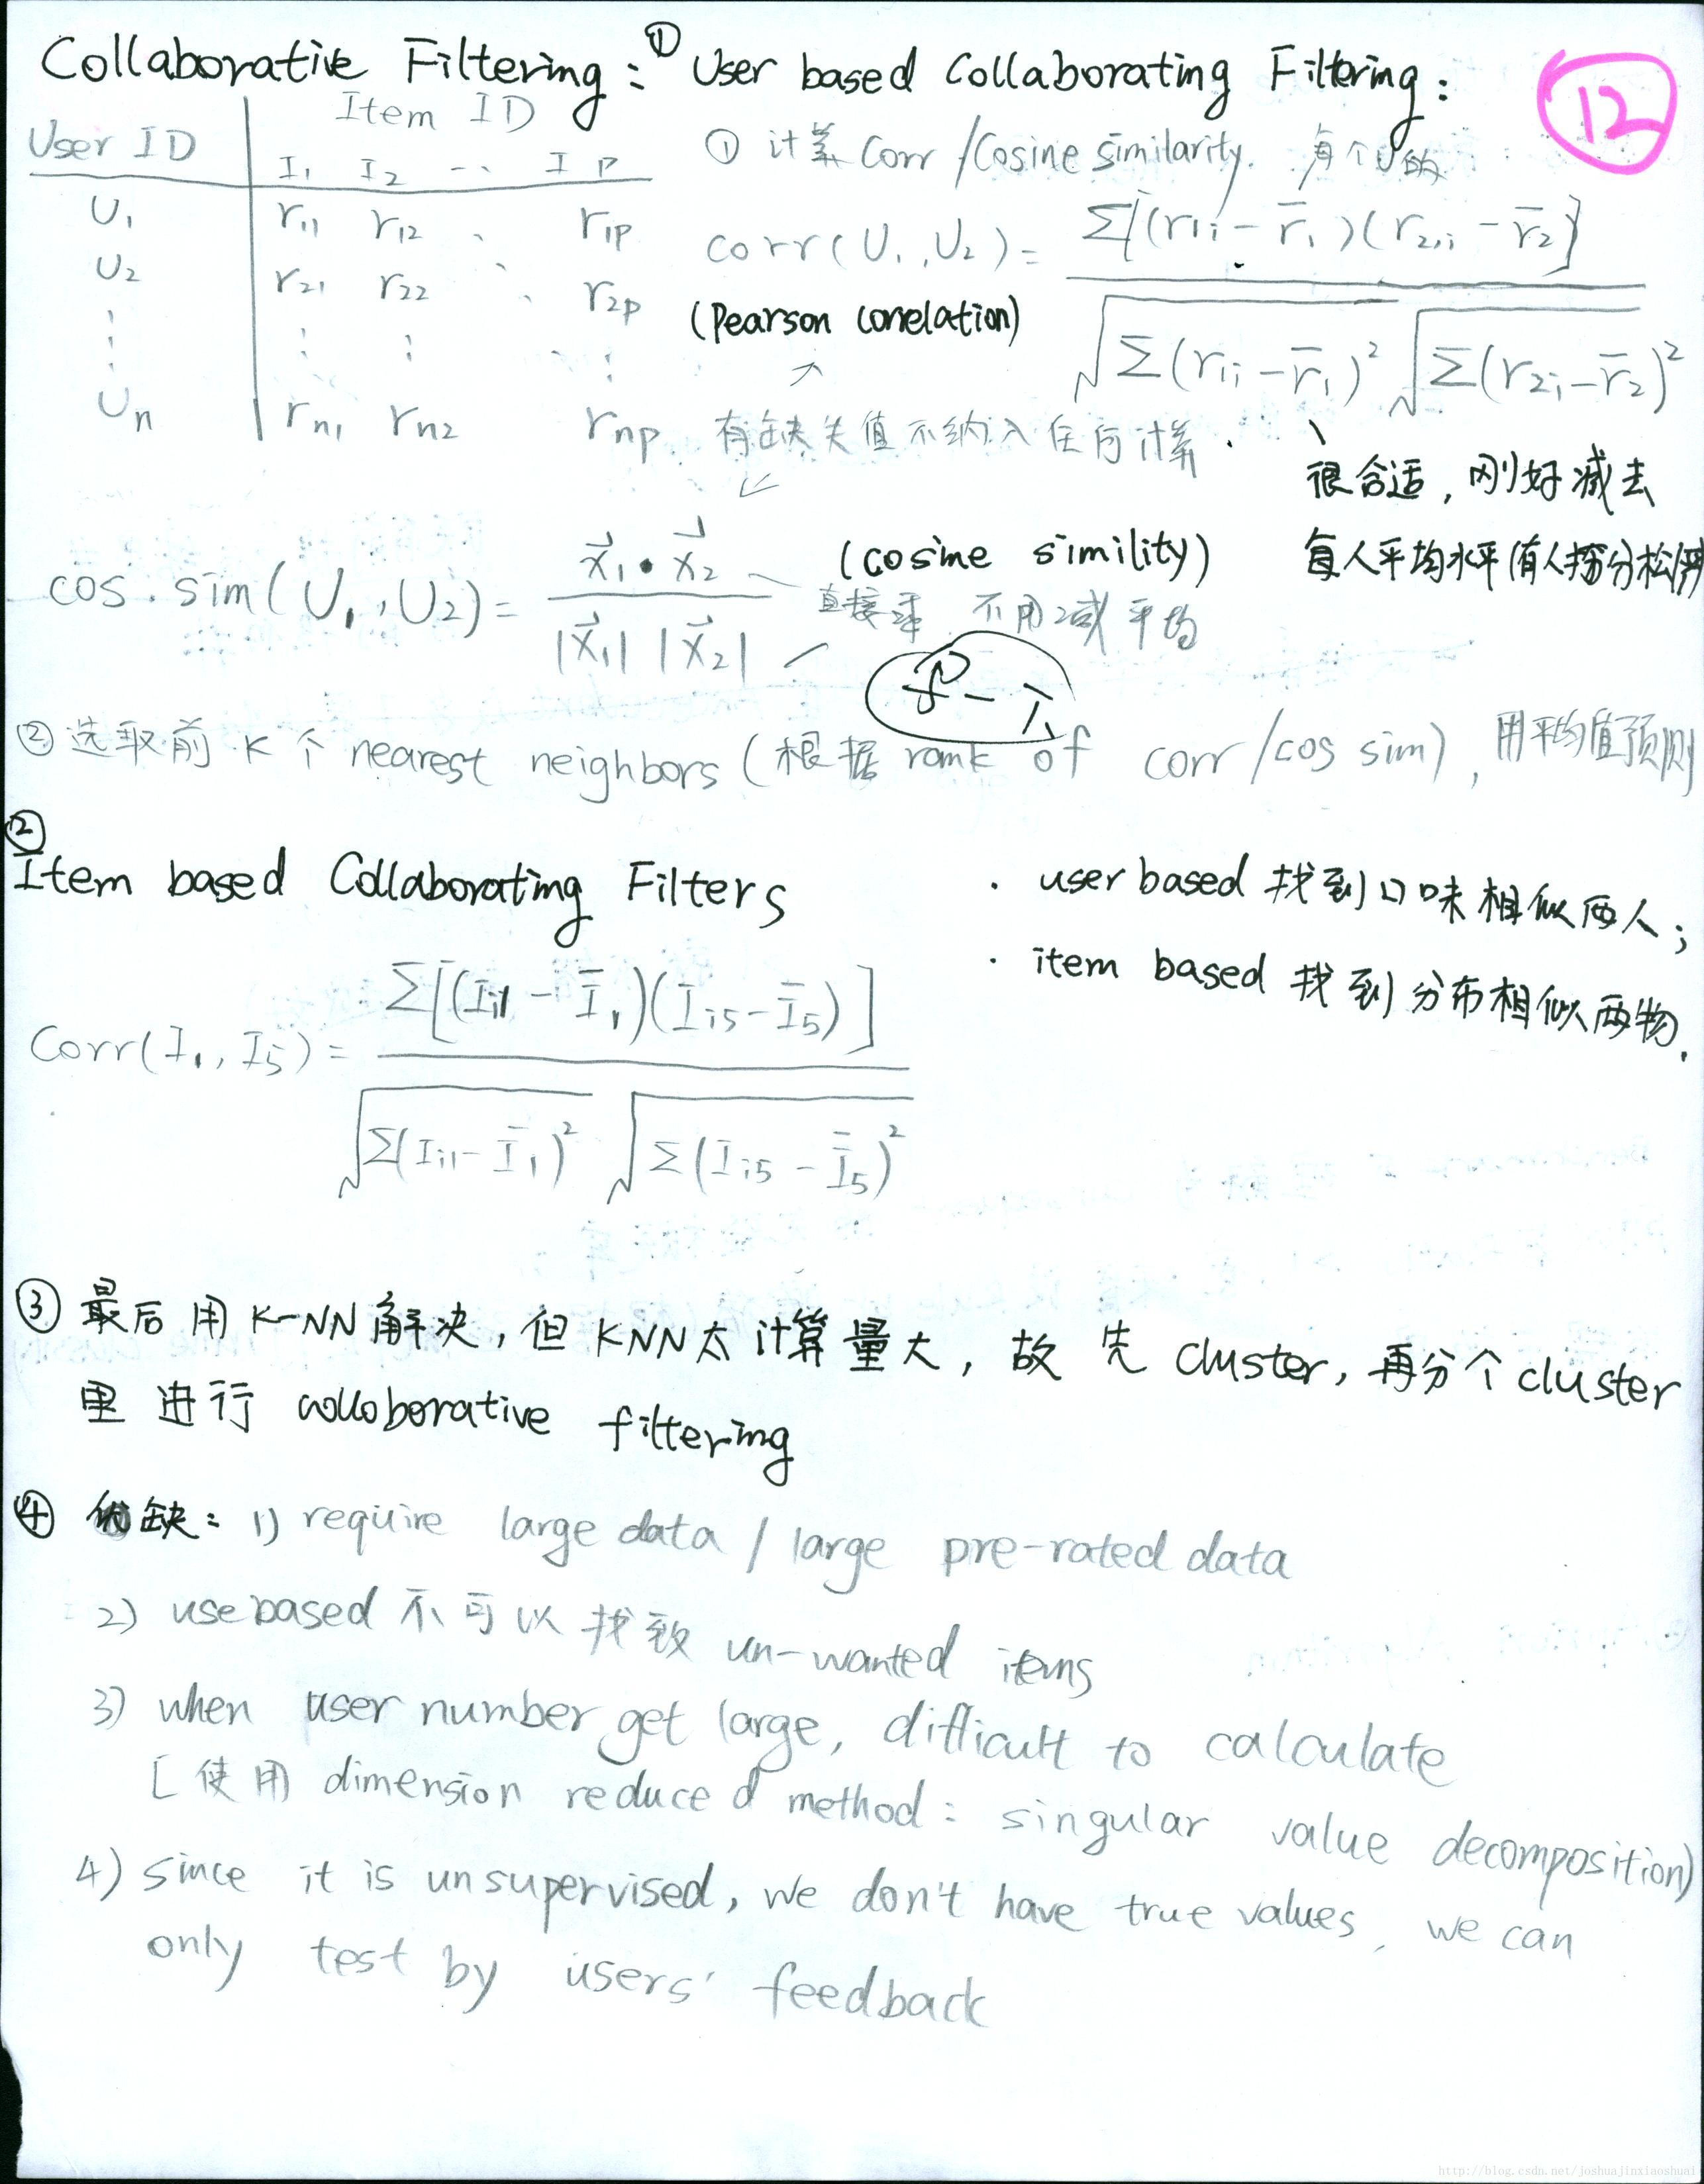 Collaborative Filtering: ① User based Collaborating Filtering:
12
Item ID
User ID
I₁ I₂ ... I p
U₁ r₁₁ r₁₂ . r₁p
U₂ r₂₁ r₂₂ . r₂p
⋮ ⋮ ⋮ ⋮
Un rn₁ rn₂ rnp
① 计算 Corr / Cosine similarity. 每个U的
corr(U₁,U₂) = Σ[(r₁i - r̄₁)(r₂,i - r̄₂)] / √Σ(r₁i - r̄₁)² √Σ(r₂i - r̄₂)²
(Pearson correlation)
有缺失值不纳入任何计算.
很合适, 刚好减去
每人平均水平(有人评分松
cos.sim(U₁,U₂) = x⃗₁•x⃗₂ / |x⃗₁| |x⃗₂|
(cosine simility)
直接乘 不用减平均
②选取前 K 个 nearest neighbors (根据 rank of corr/cos sim), 用平均值预测
②
Item based Collaborating Filters
· user based 找到口味相似两人;
· item based 找到分布相似两物.
Corr(I₁, I₅) = Σ[(Ii₁ - Ī₁)(Ii₅ - Ī₅)] / √Σ(Ii₁ - Ī₁)² √Σ(Ii₅ - Ī₅)²
③ 最后用 K-NN 解决, 但 KNN 太计算量大, 故 先 cluster, 再分个 cluster
里 进行 colloborative filtering
④ 优缺: 1) require large data / large pre-rated data
2) use based 不可以找致 un-wanted items
3) when user number get large, difficult to calculate
[使用 dimension reduced method: singular value decomposition)
4) since it is unsupervised, we don't have true values, we can
only test by users' feedback
http://blog.csdn.net/joshuajinxiaoshuai